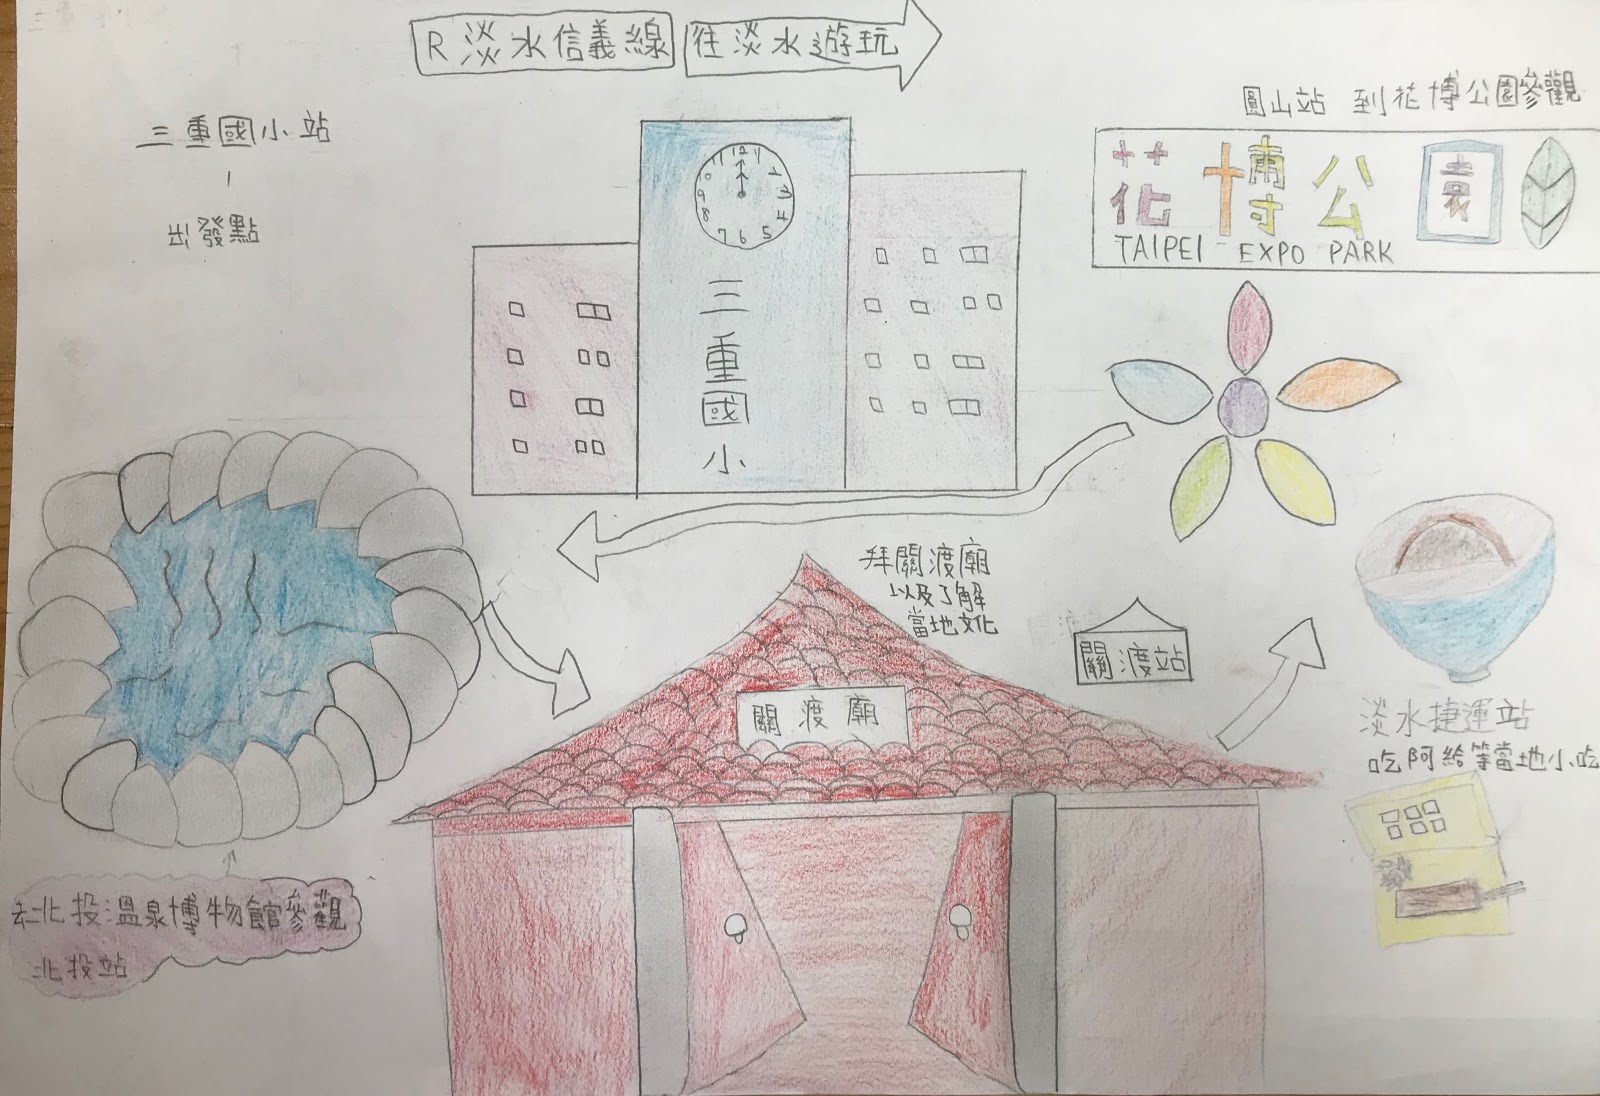 R 淡水信義線
往淡水遊玩
三重國小站
出發點
12 1 2 3 4 5 6 7 8 9 0 1
三重國小
圓山站 到花博公園參觀
花博公園
TAIPEI EXPO PARK
拜關渡廟
以及了解
當地文化
關渡站
關渡廟
淡水捷運站
吃阿給等當地小吃
去北投溫泉博物館參觀
北投站